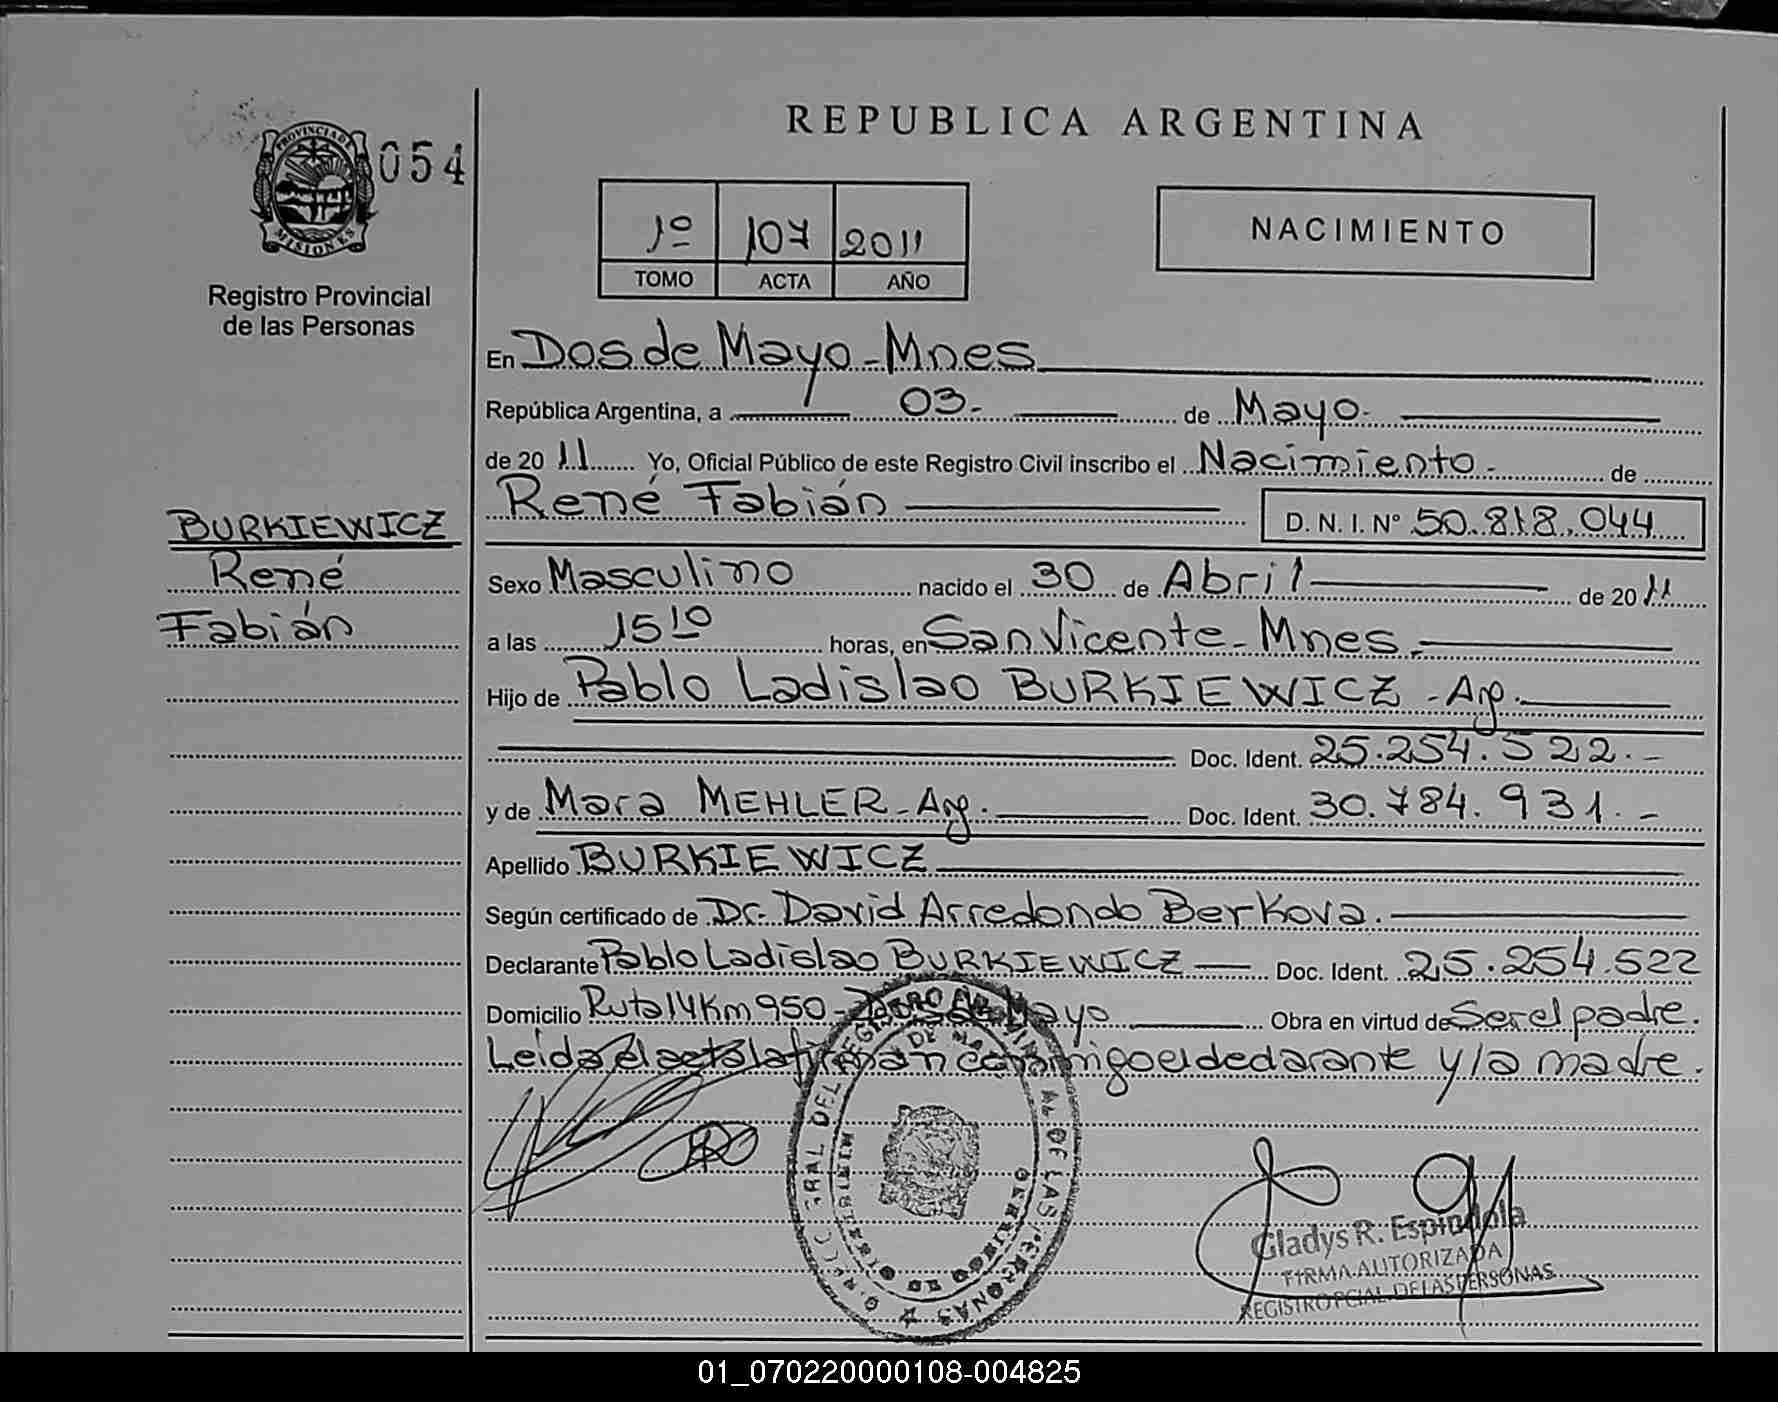 REPUBLICA ARGENTINA
PROVINCIA DE
MISIONES
054
Registro Provincial
de las Personas
1º 107 2011
TOMO ACTA AÑO
NACIMIENTO
En Dos de Mayo - Mnes
República Argentina, a 03.- de Mayo.
de 20 11 Yo, Oficial Público de este Registro Civil inscribo el Nacimiento.- de
René Fabián D. N. I. Nº 50.818.044
BURKIEWICZ
René
Fabián
Sexo Masculino nacido el 30 de Abril de 20 11
a las 15 10 horas, en San Vicente - Mnes.
Hijo de Pablo Ladislao BURKIEWICZ - Arg.
Doc. Ident. 25.254.522.-
y de Mara MEHLER - Arg. Doc. Ident. 30.784.931.-
Apellido BURKIEWICZ
Según certificado de Dr. David Arredondo Berkova.
Declarante Pablo Ladislao BURKIEWICZ Doc. Ident. 25.254.522
Domicilio Ruta 14 Km 950 - Dos de Mayo Obra en virtud de Ser el padre.
Leida el acta la firman conmigo el declarante y la madre.
Gladys R. Espindola
FIRMA AUTORIZADA
REGISTRO PCIAL. DE LAS PERSONAS
01_070220000108-004825